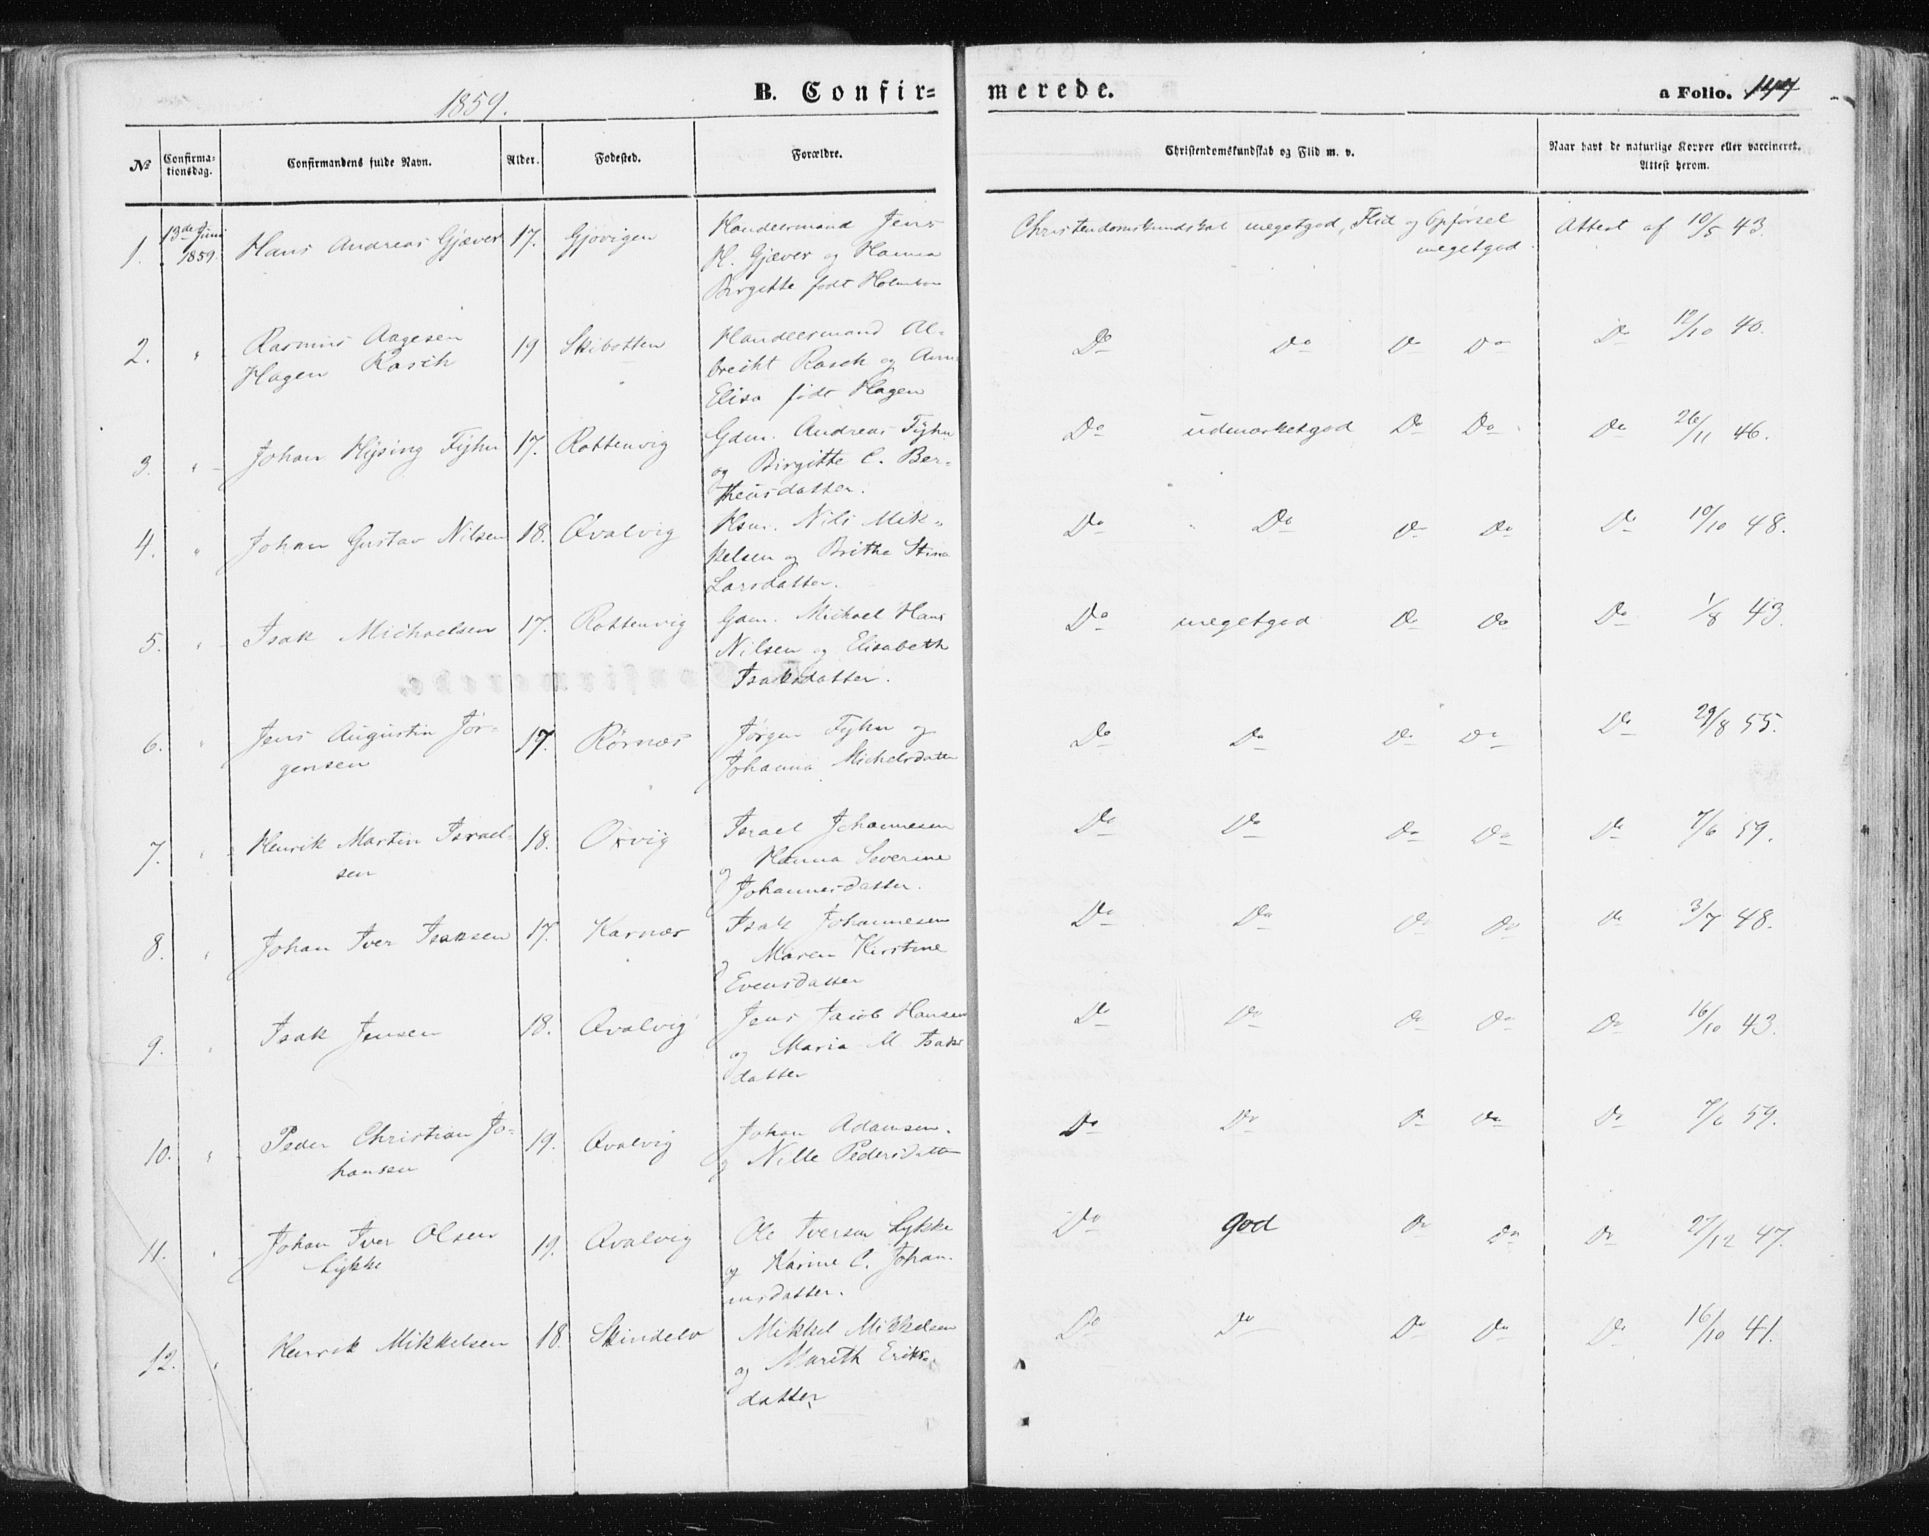 1859.
B. Confir=
merede.
a Folio. 144
№
Confirma-
tionsdag.
Confirmandens fulde Navn.
Alder.
Fødested.
Forældre.
Christendomskundskab og Flid m. v.
Naar havt de naturlige Kopper eller vaccineret.
Attest herom.
1. 13de Juni 1859. Hans Andreas Gjæver 17. Gjøvigen
Handelsmand Jens
H. Gjæver og Hanna
Birgitte født Holmboe
Christendomskundskab megetgod, Flid og Opførsel
megetgod.
Attest af 10/5 43.
2. " Rasmus Aagesen
Hagen Rasch
19 Skibotten
Handelsmand Al-
brecht Rasch og Anne
Elisa født Hagen
Do Do Do Do Do 12/10 40.
3. " Johan Hysing Fyhn 17. Rottenvig
Gdm. Andreas Fyhn
og Birgitte C. Ber-
theusdatter.
Do udmærketgod Do Do Do 26/11 46.
4. " Johan Gustav Nilsen 18. Qvalvig
Hsm. Nils Mik-
kelsen og Brithe Stina
Larsdatter.
Do Do Do Do Do 10/10 48.
5. " Isak Michaelsen 17. Rottenvig
Gdm. Michael Hans
Nilsen og Elisabeth
Isaksdatter.
Do megetgod Do Do Do 1/8 43.
6. " Jens Augustin Jør-
gensen
17. Rørnæs
Jørgen Fyhn og
Johanna Michelsdatter
Do Do Do Do Do 29/8 55.
7. " Henrik Martin Israel-
sen
18. Oxvig
Israel Johannesen
og Hanna Severine
Johannesdatter.
Do Do Do Do Do 7/6 59.
8. " Johan Iver Isaksen 17. Karnæs
Isak Johannesen
og Maren Kirstine
Evensdatter
Do Do Do Do Do 3/7 48.
9. " Isak Jensen 18. Qvalvig
Jens Jacob Hansen
og Maria M. Isaks
datter
Do Do Do Do Do 16/10 43.
10. " Peder Christian Jo-
hansen
19. Qvalvig
Johan Adamsen
og Nille Pedersdatter
Do Do Do Do Do 7/6 59.
11. " Johan Iver Olsen
Lykke
19. Qvalvig
Ole Iversen Lykke
og Karine C. Johan-
nesdatter.
Do god Do Do Do 27/12 47.
12. " Henrik Mikkelsen 18. Skindelv
Mikkel Mikkelsen
og Marith Eriks-
datter
Do Do Do Do Do 16/10 41.